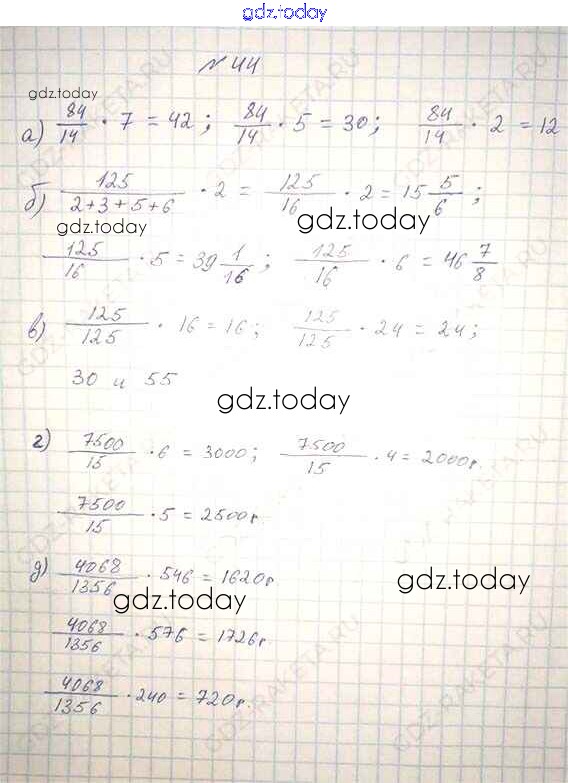 gdz.today
№ 44
gdz.today
а) 84/14 · 7 = 42; 84/14 · 5 = 30; 84/14 · 2 = 12
б) 125/(2+3+5+6) · 2 = 125/16 · 2 = 15 5/6;
gdz.today
gdz.today
125/16 · 5 = 39 1/16; 125/16 · 6 = 46 7/8
в) 125/125 · 16 = 16; 125/125 · 24 = 24;
30 и 55
gdz.today
г) 7500/15 · 6 = 3000; 7500/15 · 4 = 2000г.
7500/15 · 5 = 2500г.
д) 4068/1356 · 546 = 1620г.
gdz.today
gdz.today
4068/1356 · 576 = 1726г.
4068/1356 · 240 = 720г.